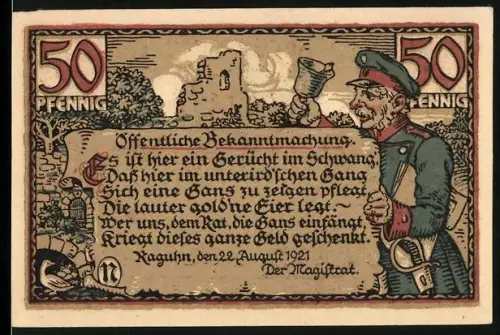 50 50
PFENNIG PFENNIG
Öffentliche Bekanntmachung.
Es ist hier ein Gerücht im Schwang,
Daß hier im unterird'schen Gang
Sich eine Gans zu zeigen pflegt,
Die lauter gold'ne Eier legt.~
Wer uns, dem Rat, die Gans einfängt,
Kriegt dieses ganze Geld geschenkt.
Raguhn, den 22. August 1921
Der Magistrat.
N